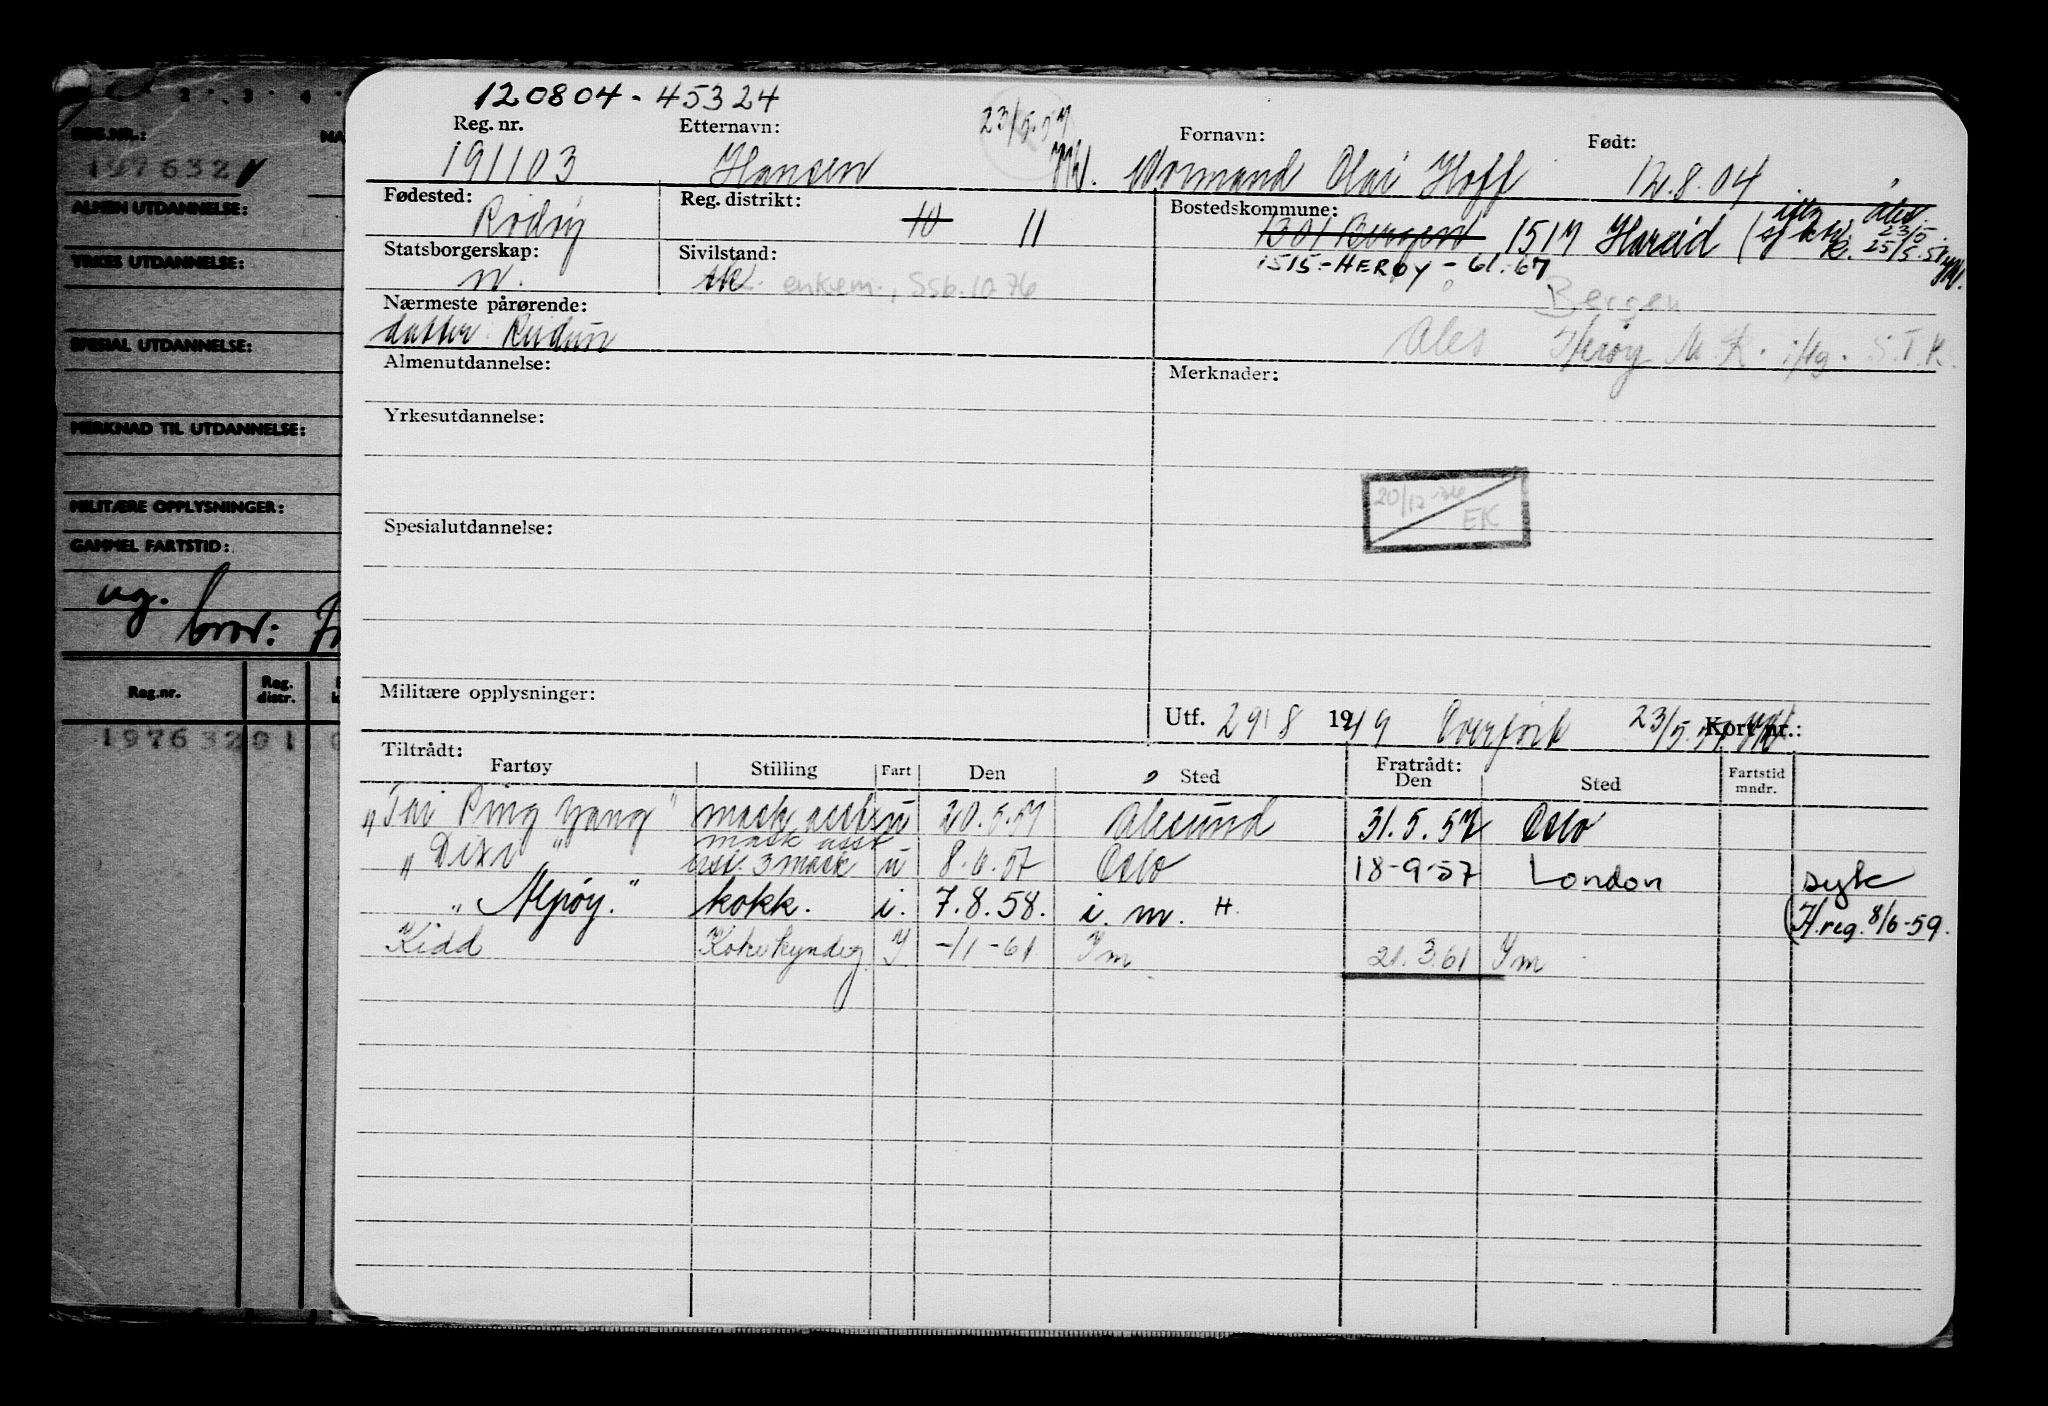 120804-45324
Reg. nr. Etternavn: 23/5.57 Fornavn: Født:
191103 Hansen Normand Olai Hoff 12.8.04
Fødested: Reg. distrikt: Bostedskommune:
Rødøy 10 11 1301 Bergen 1517 Hareid
Statsborgerskap: Sivilstand: 1515-HERØY-61.67
n. enkem., Ssb. 10 76 Bergen
Nærmeste pårørende:
datter: Reidun Ales Herøy M.K. S.T.K.
Almenutdannelse: Merknader:
Yrkesutdannelse:
20/12 EK
Spesialutdannelse:
Militære opplysninger:
Utf. 29/8 1949 23/5.57 Kort nr.:
Tiltrådt: Fratrådt:
Fartøy Stilling Fart Den Sted Den Sted Fartstid mndr.
"Tai Ping Yang" mask asst u 20.5.57 Ålesund 31.5.57 Oslo
mask asst
"Dixi" 3 mask u 8.6.57 Oslo 18-9-57 London syk
kokk. i. 7.8.58. i. m. H. (H.reg. 8/6-59.
Kidd Y -/1-61 Ym 21.3.61 Ym
2 3 4
REG.NR.: NA
197632
ALMEN UTDANNELSE:
YRKES UTDANNELSE:
SPESIAL UTDANNELSE:
MERKNAD TIL UTDANNELSE:
MILITÆRE OPPLYSNINGER:
GAMMEL FARTSTID:
ug.
bror:
Reg.nr. Reg. distr.
197632 01 0